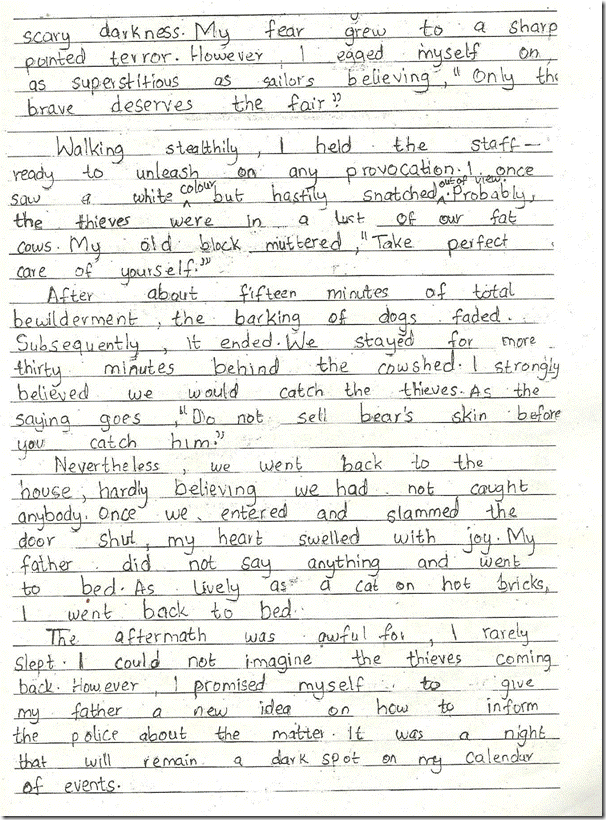 scary darkness. My fear grew to a sharp
pointed terror. However, I egged myself on,
as superstitious as sailors believing, "Only th
brave deserves the fair."
Walking stealthily, I held the staff—
ready to unleash on any provocation. I once
saw a white colour but hastily snatched out of view. Probably,
the thieves were in a lust of our fat
cows. My old block muttered, "Take perfect
care of yourself.""
After about fifteen minutes of total
bewilderment, the barking of dogs faded.
Subsequently, it ended. We stayed for more
thirty minutes behind the cowshed. I strongly
believed we would catch the thieves. As the
saying goes, "Do not sell bear's skin before
you catch him."
Nevertheless, we went back to the
house, hardly believing we had not caught
anybody. Once we entered and slammed the
door shut, my heart swelled with joy. My
father did not say anything and went
to bed. As lively as a cat on hot bricks,
I went back to bed.
The aftermath was awful for, I rarely
slept. I could not imagine the thieves coming
back. However, I promised myself to give
my father a new idea on how to inform
the police about the matter. It was a night
that will remain a dark spot on my calendar
of events.